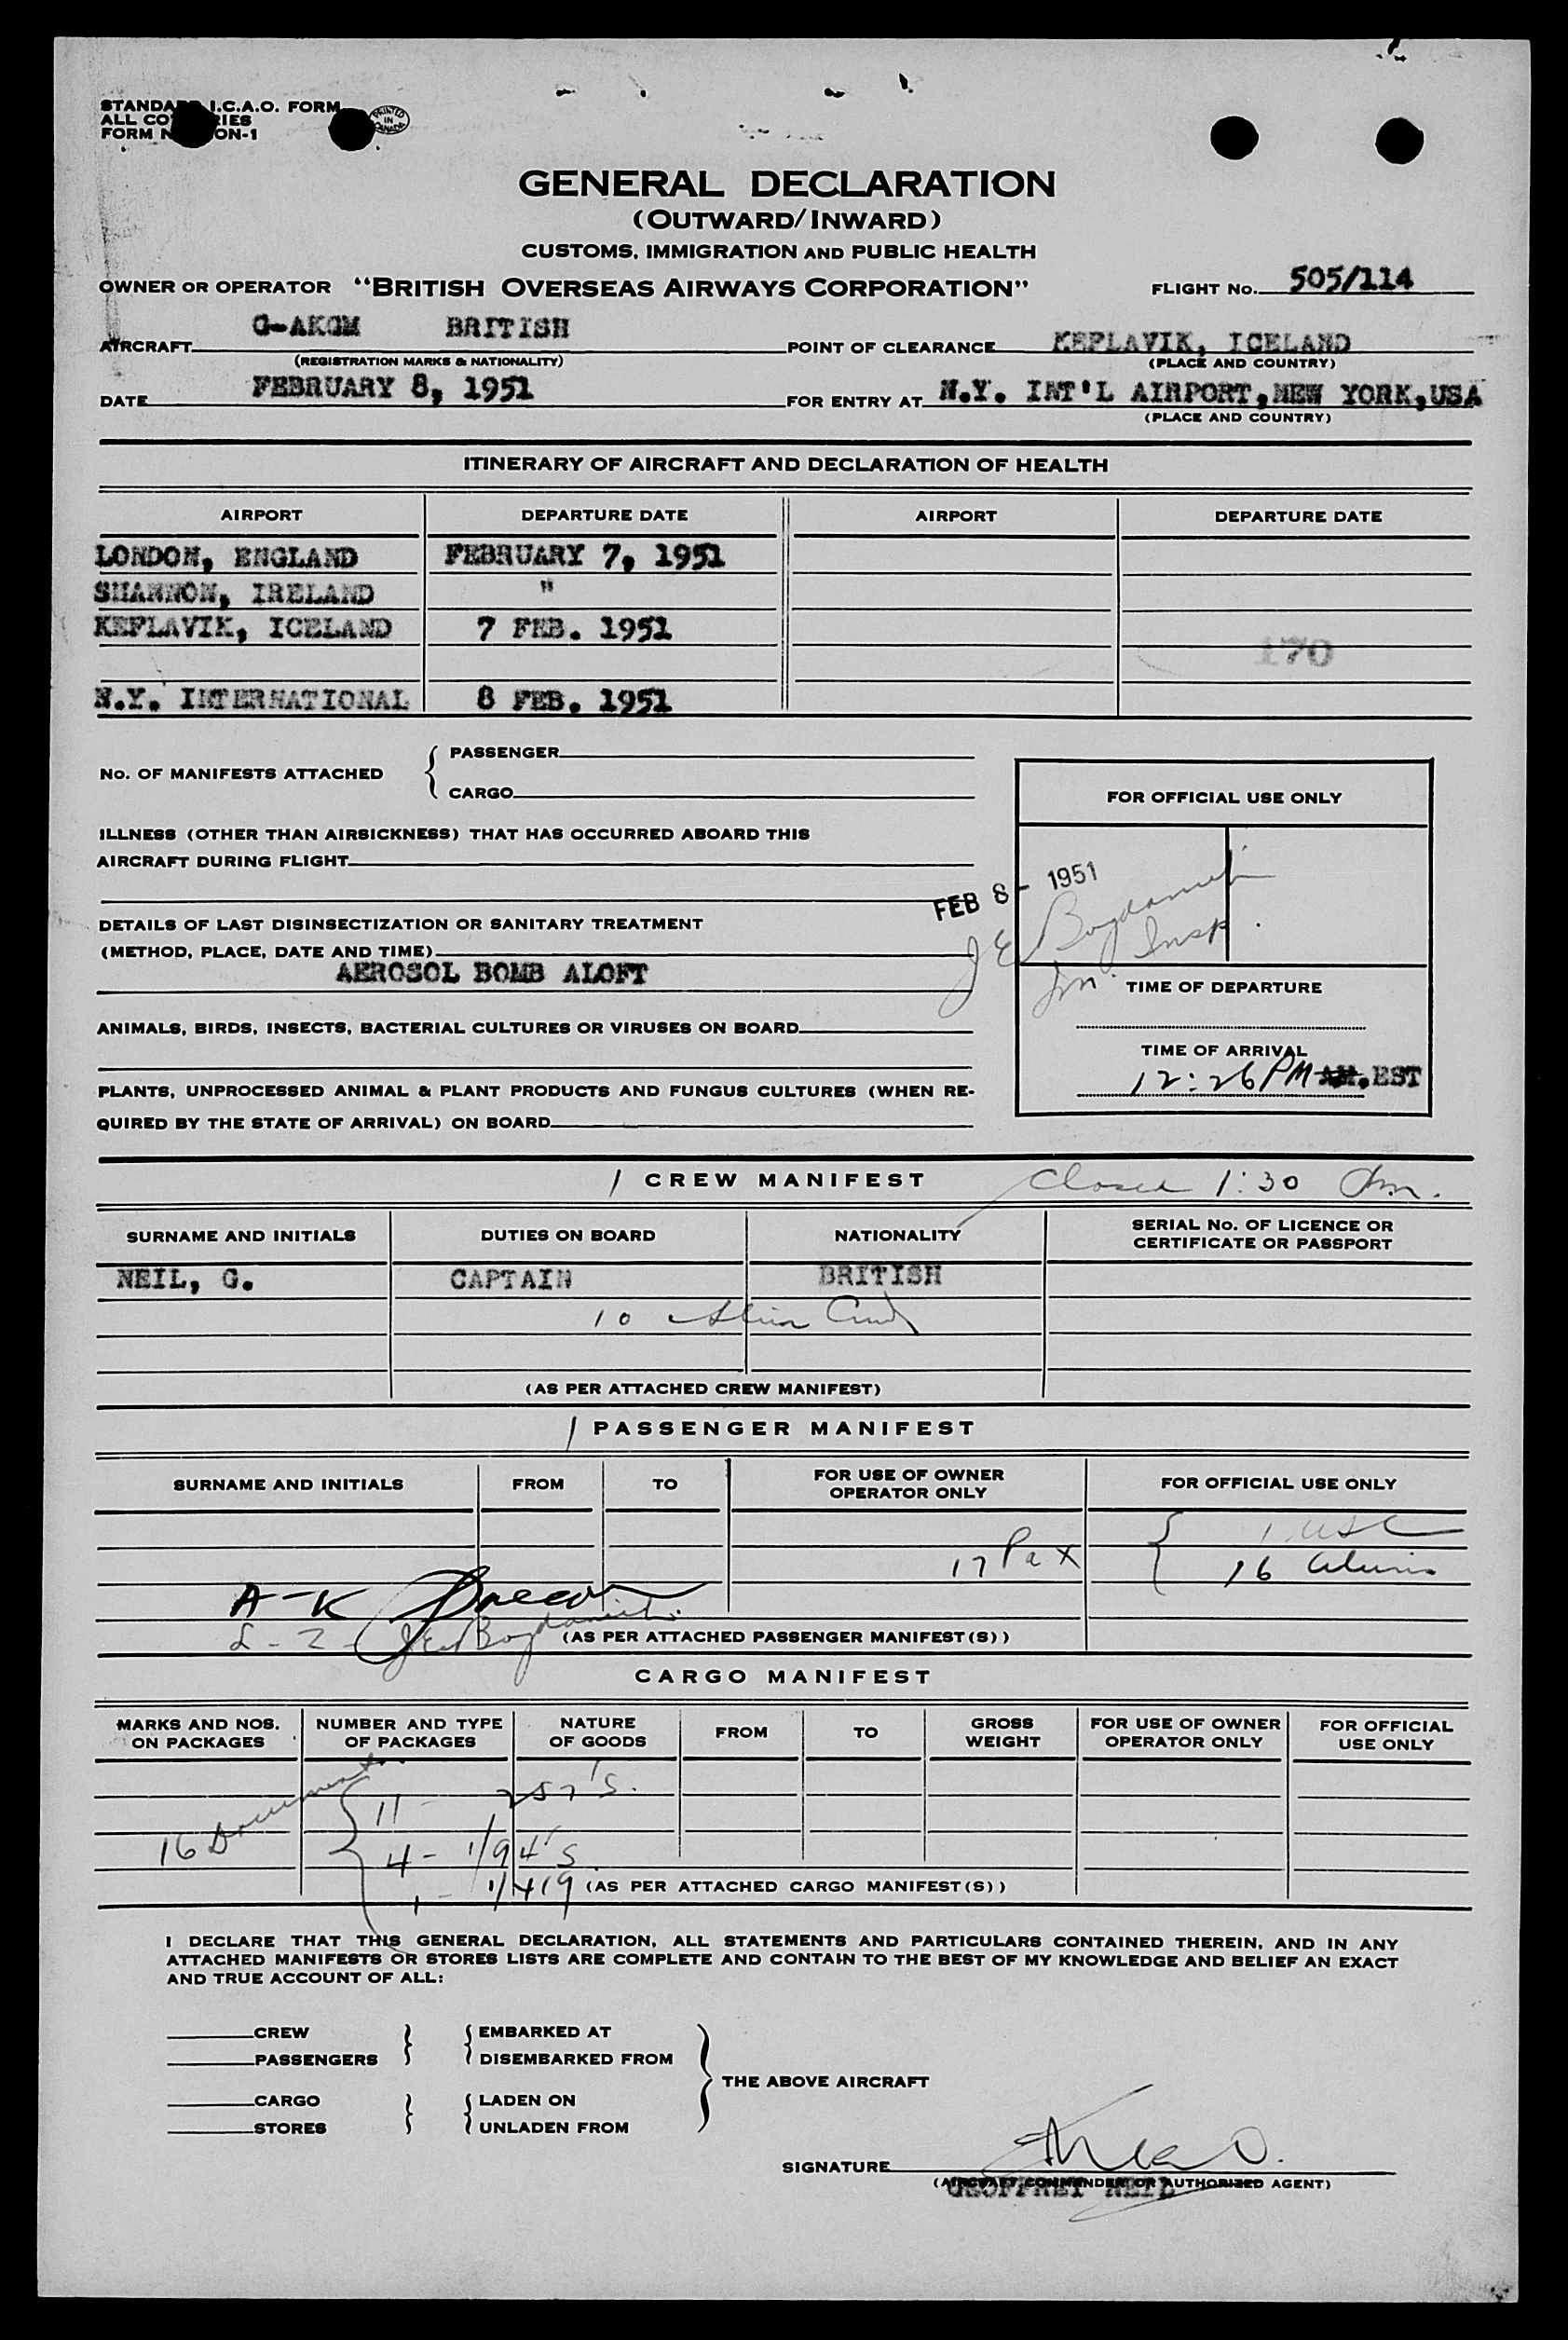 STANDARD I.C.A.O. FORM
ALL COUNTRIES
FORM N ON-1
PRINTED IN CANADA
GENERAL DECLARATION
(OUTWARD/INWARD)
CUSTOMS, IMMIGRATION AND PUBLIC HEALTH
OWNER OR OPERATOR "BRITISH OVERSEAS AIRWAYS CORPORATION" FLIGHT No. 505/114
AIRCRAFT G-AKGM BRITISH POINT OF CLEARANCE KEFLAVIK, ICELAND
(REGISTRATION MARKS & NATIONALITY) (PLACE AND COUNTRY)
DATE FEBRUARY 8, 1951 FOR ENTRY AT N.Y. INT'L AIRPORT, NEW YORK, USA
(PLACE AND COUNTRY)
ITINERARY OF AIRCRAFT AND DECLARATION OF HEALTH
AIRPORT DEPARTURE DATE AIRPORT DEPARTURE DATE
LONDON, ENGLAND FEBRUARY 7, 1951
SHANNON, IRELAND "
KEFLAVIK, ICELAND 7 FEB. 1951
170
N.Y. INTERNATIONAL 8 FEB. 1951
No. OF MANIFESTS ATTACHED { PASSENGER
CARGO
FOR OFFICIAL USE ONLY
ILLNESS (OTHER THAN AIRSICKNESS) THAT HAS OCCURRED ABOARD THIS
AIRCRAFT DURING FLIGHT
FEB 8 - 1951
J E Bogdanich
Im. Insp.
DETAILS OF LAST DISINSECTIZATION OR SANITARY TREATMENT
(METHOD, PLACE, DATE AND TIME)
AEROSOL BOMB ALOFT
TIME OF DEPARTURE
ANIMALS, BIRDS, INSECTS, BACTERIAL CULTURES OR VIRUSES ON BOARD
TIME OF ARRIVAL
12:26 PM AM. EST
PLANTS, UNPROCESSED ANIMAL & PLANT PRODUCTS AND FUNGUS CULTURES (WHEN RE-
QUIRED BY THE STATE OF ARRIVAL) ON BOARD
/ CREW MANIFEST Closed 1:30 Pm.
SURNAME AND INITIALS DUTIES ON BOARD NATIONALITY SERIAL No. OF LICENCE OR
CERTIFICATE OR PASSPORT
NEIL, G. CAPTAIN BRITISH
10 Alien Crew
(AS PER ATTACHED CREW MANIFEST)
/ PASSENGER MANIFEST
SURNAME AND INITIALS FROM TO FOR USE OF OWNER
OPERATOR ONLY FOR OFFICIAL USE ONLY
1 USC
17 Pax { 16 Aliens
A-K
L-Z - J E Bogdanich
(AS PER ATTACHED PASSENGER MANIFEST(S))
CARGO MANIFEST
MARKS AND NOS.
ON PACKAGES NUMBER AND TYPE
OF PACKAGES NATURE
OF GOODS FROM TO GROSS
WEIGHT FOR USE OF OWNER
OPERATOR ONLY FOR OFFICIAL
USE ONLY
16 Documents { 11 - 257's.
4 - 1/94's.
1 - 1/419
(AS PER ATTACHED CARGO MANIFEST(S))
I DECLARE THAT THIS GENERAL DECLARATION, ALL STATEMENTS AND PARTICULARS CONTAINED THEREIN, AND IN ANY
ATTACHED MANIFESTS OR STORES LISTS ARE COMPLETE AND CONTAIN TO THE BEST OF MY KNOWLEDGE AND BELIEF AN EXACT
AND TRUE ACCOUNT OF ALL:
CREW } { EMBARKED AT
PASSENGERS } { DISEMBARKED FROM
THE ABOVE AIRCRAFT
CARGO } { LADEN ON
STORES } { UNLADEN FROM
SIGNATURE
(AIRCRAFT COMMANDER OR AUTHORIZED AGENT)
GEOFFREY NEIL